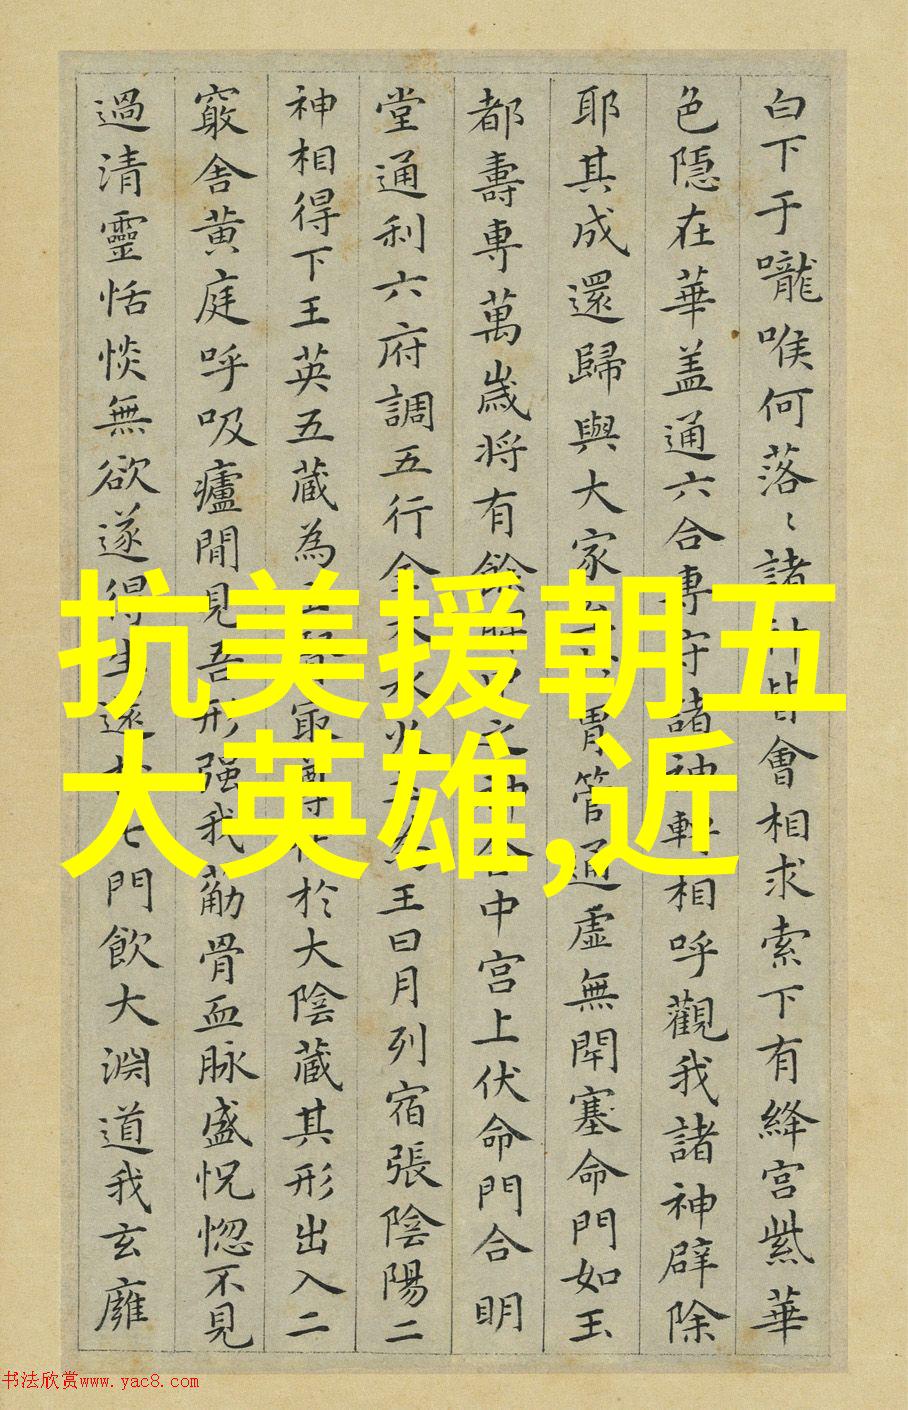 白下于嚨喉何落〻諸神皆會相求索下有絳宫紫華
色隱在華盖通六合專守諸神轉相呼觀我諸神辟除
耶其成還歸與大家 胃管通虛無閇塞命門如玉
都壽專萬歲將有餘 之神 中宫上伏命門合明
堂通利六府調五行金木水火土為王日月列宿張陰陽二
神相得下王英五藏為 冣尊 於大陰藏其形出入二
竅舍黄庭呼吸廬閒見吾形强我葪骨血脉盛怳惚不見
過清靈恬惔無欲遂得生還 七門飲大淵道我玄雍
抗美援朝五
大英雄,近
书法欣赏www.yac8.com